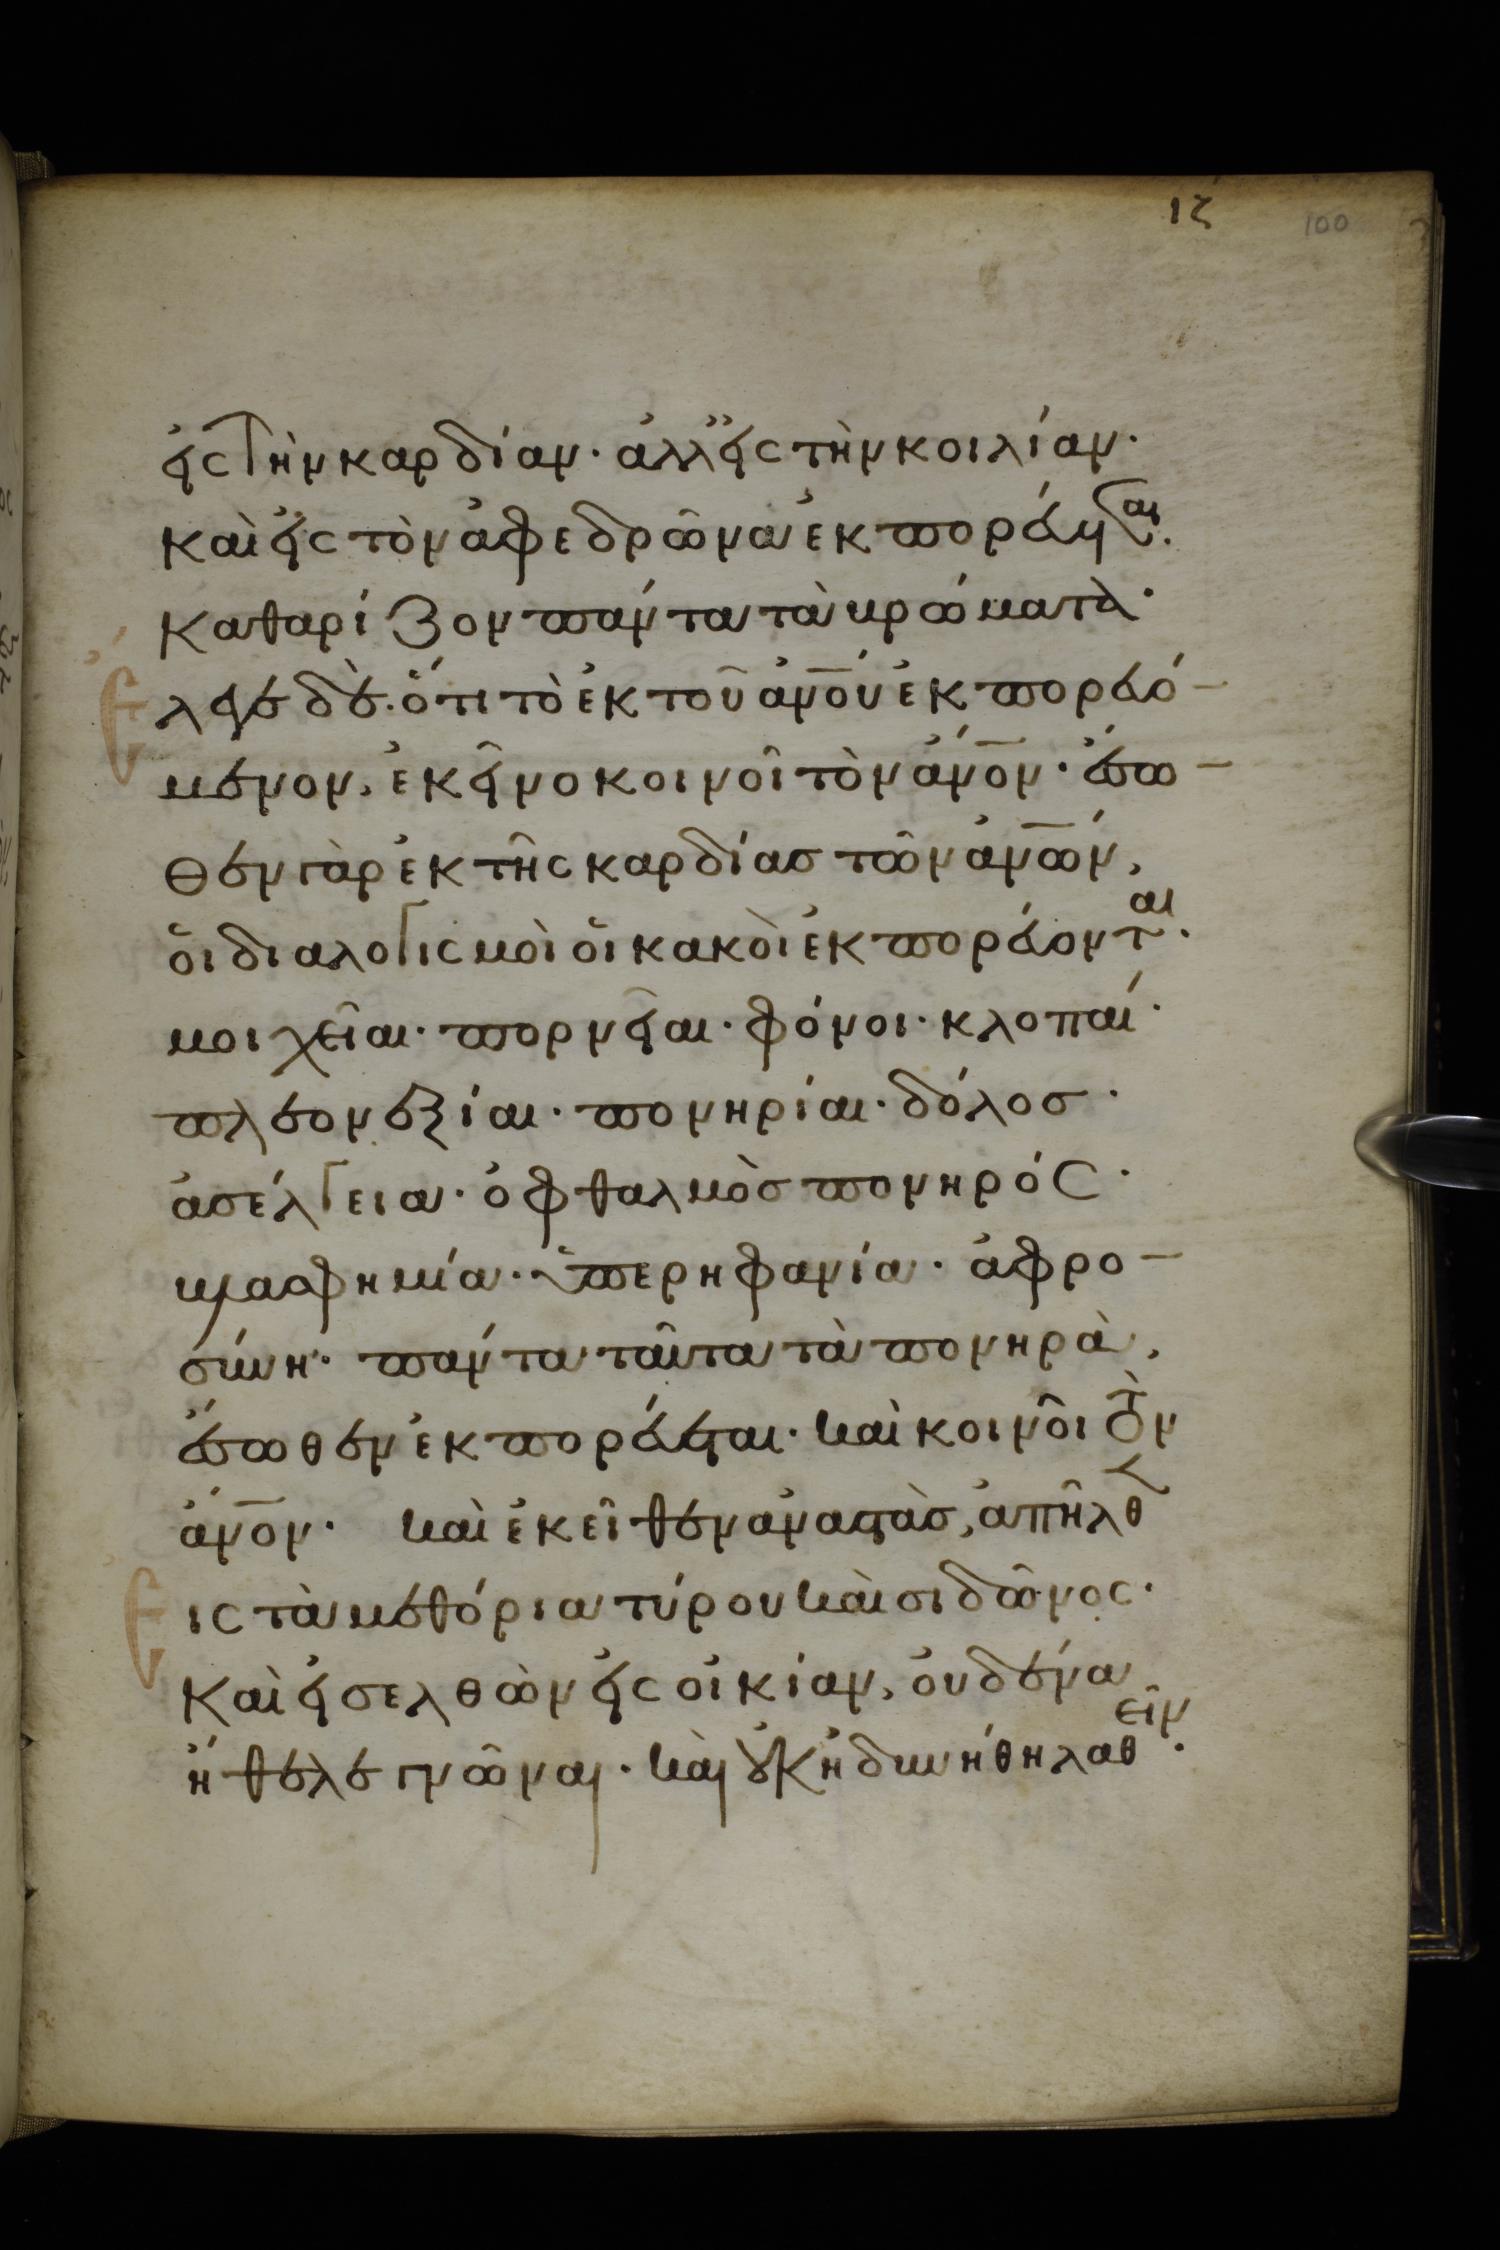 ιζ 100
εἰς τὴν καρδίαν· ἀλλ' εἰς τὴν κοιλίαν·
καὶ εἰς τὸν ἀφεδρῶνα ἐκπορεύεται.
καθαρίζον πάντα τὰ βρώματα·
Ἔλεγε δὲ· ὅτι τὸ ἐκ τοῦ ἀν̅ο̅υ̅ ἐκπορευό-
μενον, ἐκεῖνο κοινοῖ τὸν ἄν̅ο̅ν̅· ἔσω-
θεν γὰρ ἐκ τῆς καρδίας τῶν ἀν̅ω̅ν̅,
οἱ διαλογισμοὶ οἱ κακοὶ ἐκπορεύονται·
μοιχεῖαι· πορνεῖαι· φόνοι· κλοπαί·
πλεονεξίαι· πονηρίαι· δόλος·
ἀσέλγεια· ὀφθαλμὸς πονηρός·
βλασφημία· ὑπερηφανία· ἀφρο-
σύνη· πάντα ταῦτα τὰ πονηρὰ,
ἔσωθεν ἐκπορεύεται· καὶ κοινοῖ τὸν
ἄν̅ο̅ν̅· καὶ ἐκεῖθεν ἀναστὰς, ἀπῆλθεν
Εἰς τὰ μεθόρια τύρου καὶ σιδῶνος·
καὶ εἰσελθὼν εἰς οἰκίαν, οὐδένα
ἤθελε γνῶναι· καὶ οὐκ ἠδυνήθη λαθεῖν·